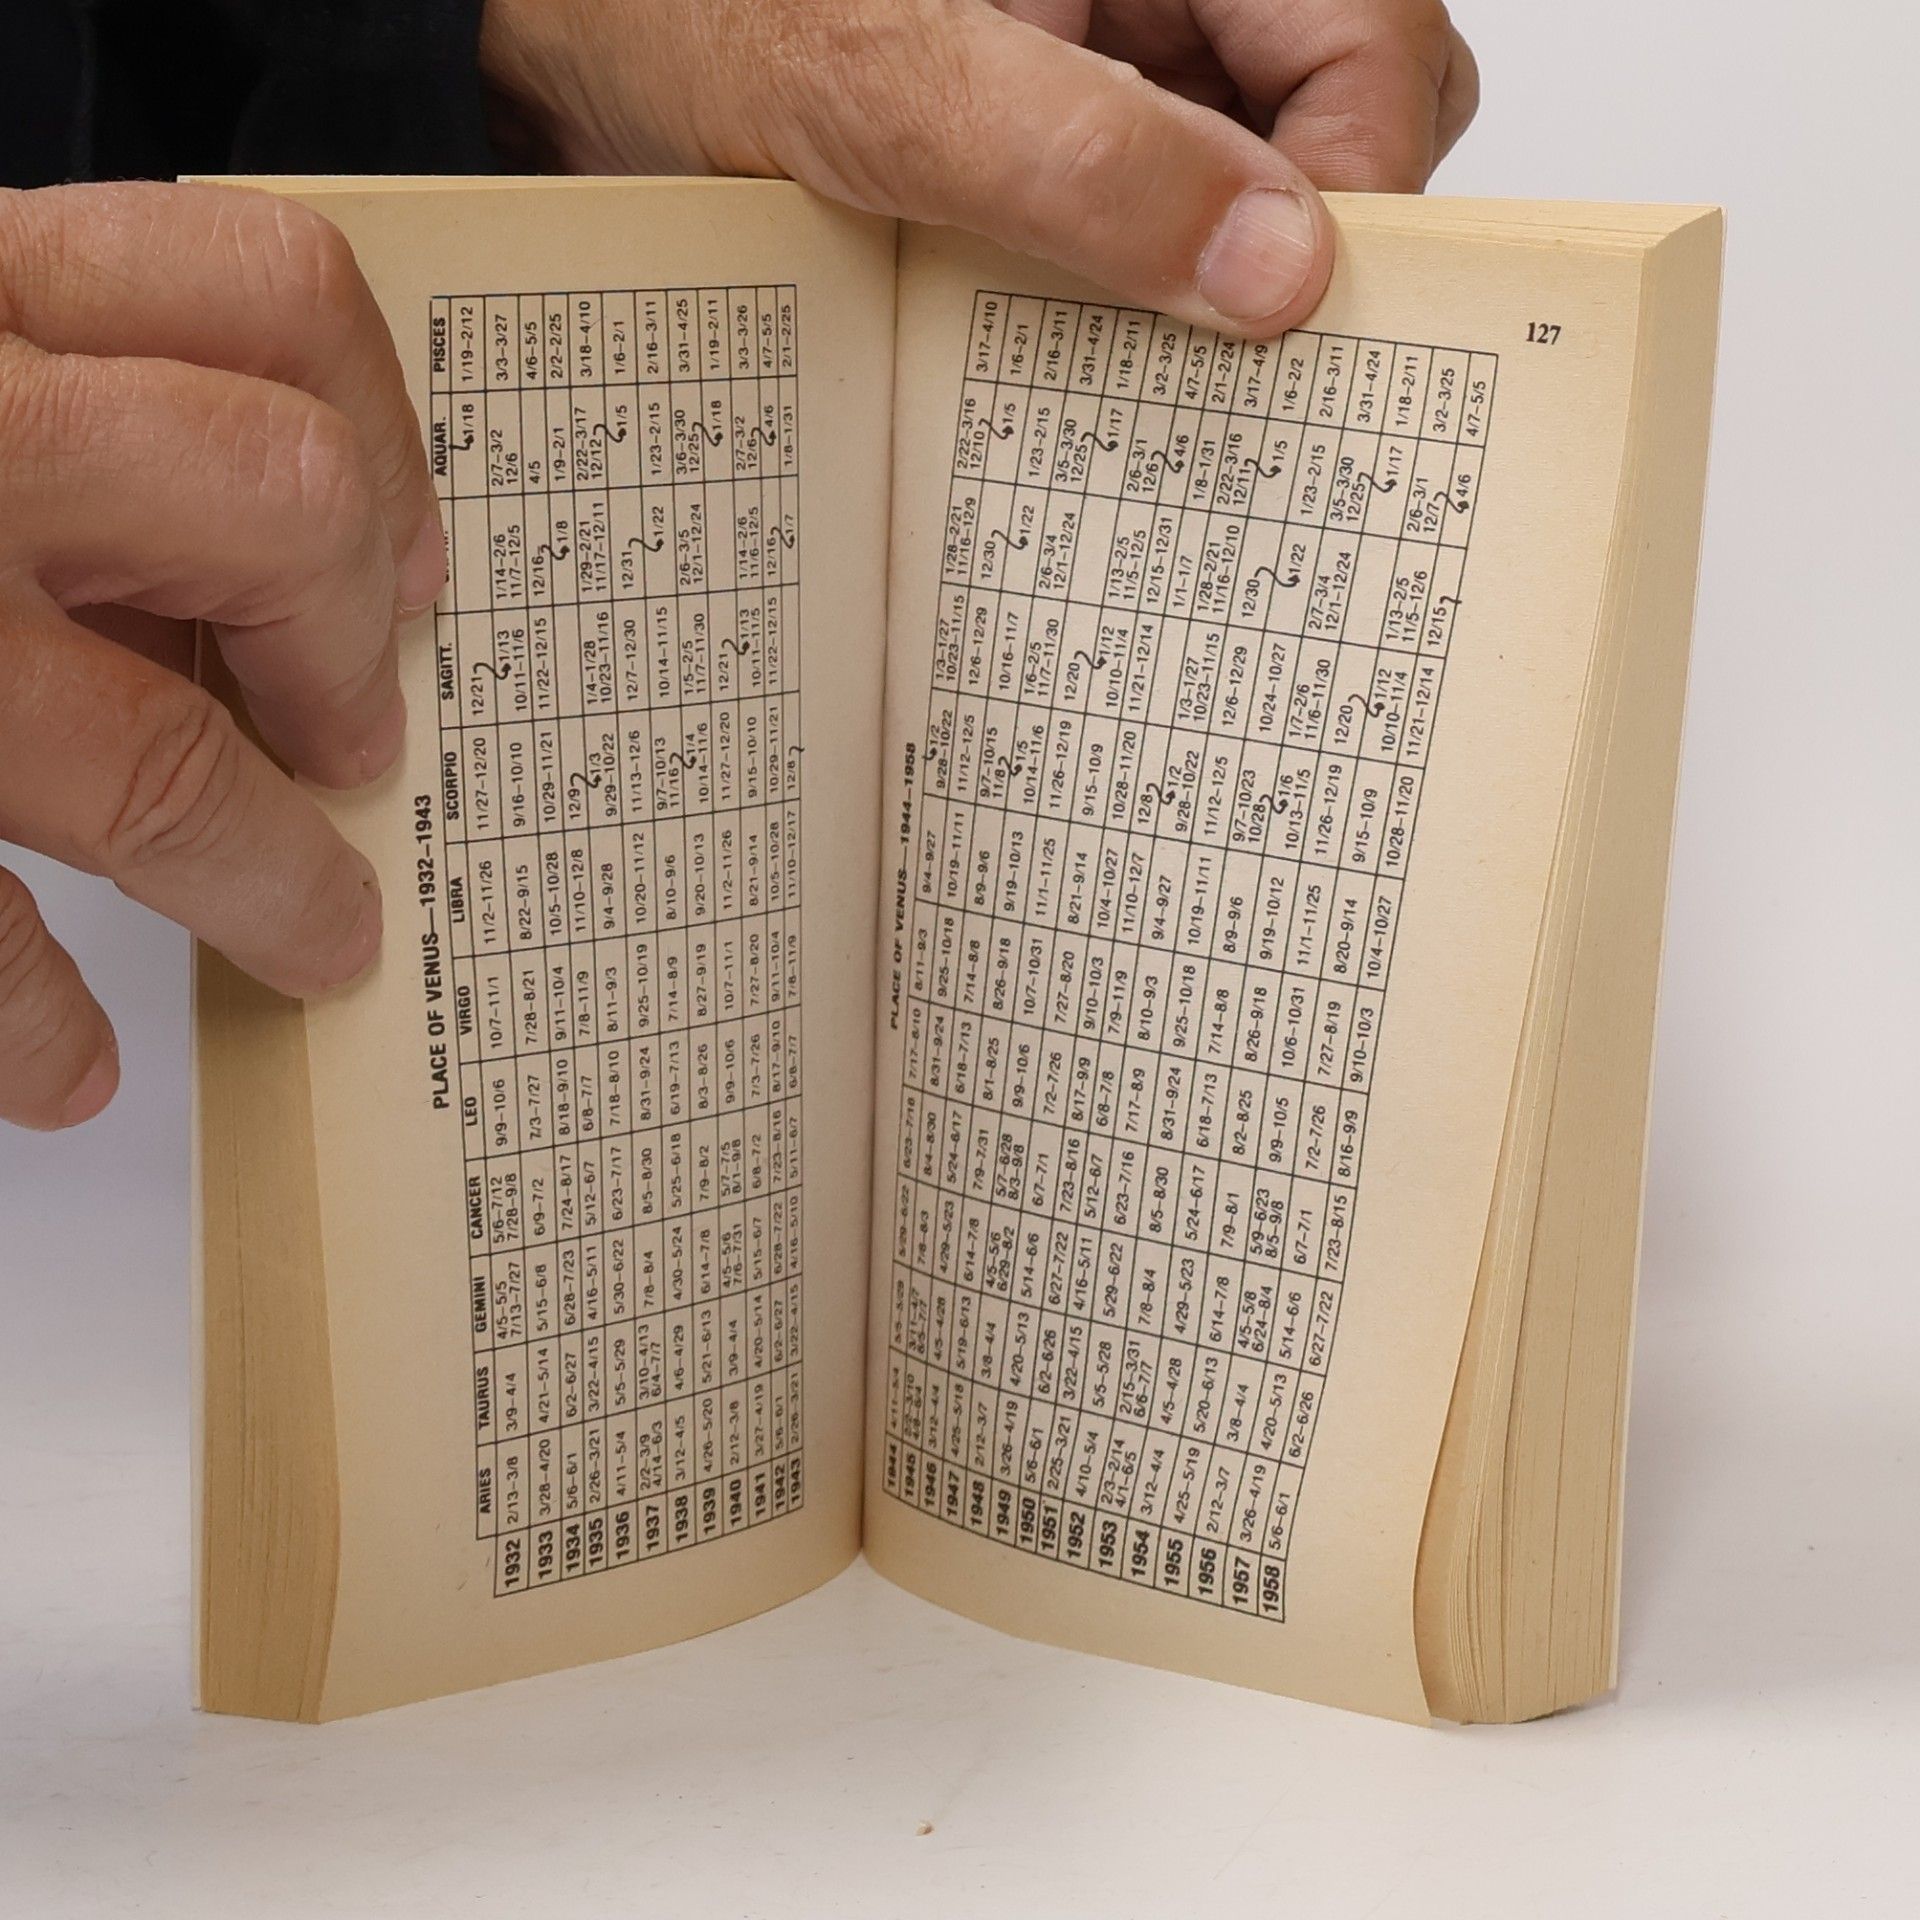 PLACE OF VENUS—1932–1943
ARIES TAURUS GEMINI CANCER LEO VIRGO LIBRA SCORPIO SAGITT. AQUAR. PISCES
1932 2/13–3/8 3/9–4/4 4/5–5/5 7/13–7/27 5/6–7/12 7/28–9/8 9/9–10/6 10/7–11/1 11/2–11/26 11/27–12/20 12/21 1/18 1/19–2/12
1933 3/28–4/20 4/21–5/14 5/15–6/8 6/9–7/2 7/3–7/27 7/28–8/21 8/22–9/15 9/16–10/10 1/13 10/11–11/6 1/14–2/6 11/7–12/5 2/7–3/2 12/6 3/3–3/27
1934 5/6–6/1 6/2–6/27 6/28–7/23 7/24–8/17 8/18–9/10 9/11–10/4 10/5–10/28 10/29–11/21 11/22–12/15 12/16 4/5 4/6–5/5
1935 2/26–3/21 3/22–4/15 4/16–5/11 5/12–6/7 6/8–7/7 7/8–11/9 11/10–12/8 12/9 1/8 1/9–2/1 2/2–2/25
1936 4/11–5/4 5/5–5/29 5/30–6/22 6/23–7/17 7/18–8/10 8/11–9/3 9/4–9/28 1/3 9/29–10/22 1/4–1/28 10/23–11/16 1/29–2/21 11/17–12/11 2/22–3/17 12/12 3/18–4/10
1937 2/2–3/9 4/14–6/3 3/10–4/13 6/4–7/7 7/8–8/4 8/5–8/30 8/31–9/24 9/25–10/19 10/20–11/12 11/13–12/6 12/7–12/30 12/31 1/5 1/6–2/1
1938 3/12–4/5 4/6–4/29 4/30–5/24 5/25–6/18 6/19–7/13 7/14–8/9 8/10–9/6 9/7–10/13 11/16 10/14–11/15 1/22 1/23–2/15 2/16–3/11
1939 4/26–5/20 5/21–6/13 6/14–7/8 7/9–8/2 8/3–8/26 8/27–9/19 9/20–10/13 1/4 10/14–11/6 1/5–2/5 11/7–11/30 2/6–3/5 12/1–12/24 3/6–3/30 12/25 3/31–4/25
1940 2/12–3/8 3/9–4/4 4/5–5/6 7/6–7/31 5/7–7/5 8/1–9/8 9/9–10/6 10/7–11/1 11/2–11/26 11/27–12/20 12/21 1/18 1/19–2/11
1941 3/27–4/19 4/20–5/14 5/15–6/7 6/8–7/2 7/3–7/26 7/27–8/20 8/21–9/14 9/15–10/10 1/13 10/11–11/5 1/14–2/6 11/6–12/5 2/7–3/2 12/6 3/3–3/26
1942 5/6–6/1 6/2–6/27 6/28–7/22 7/23–8/16 8/17–9/10 9/11–10/4 10/5–10/28 10/29–11/21 11/22–12/15 12/16 4/6 4/7–5/5
1943 2/26–3/21 3/22–4/15 4/16–5/10 5/11–6/7 6/8–7/7 7/8–11/9 11/10–12/17 12/8 1/7 1/8–1/31 2/1–2/25
127
PLACE OF VENUS—1944–1958
1944 4/11–5/4 5/5–5/29 5/29–6/22 6/23–7/16 7/17–8/10 8/11–9/3 9/4–9/27 1/2 9/28–10/22 1/3–1/27 10/23–11/15 1/28–2/21 11/16–12/9 2/22–3/16 12/10 3/17–4/10
1945 7/8–8/3 8/4–8/30 8/31–9/24 9/25–10/18 10/19–11/11 11/12–12/5 12/6–12/29 12/30 1/5 1/6–2/1
1946 3/12–4/4 4/5–4/28 4/29–5/23 5/24–6/17 6/18–7/13 7/14–8/8 8/9–9/6 9/7–10/15 11/8 10/16–11/7 1/22 1/23–2/15 2/16–3/11
1947 4/25–5/18 5/19–6/13 6/14–7/8 7/9–7/31 8/1–8/25 8/26–9/18 9/19–10/13 1/5 10/14–11/6 1/6–2/5 11/7–11/30 2/6–3/4 12/1–12/24 3/5–3/30 12/25 3/31–4/24
1948 2/12–3/7 3/8–4/4 4/5–5/6 6/29–8/2 5/7–6/28 8/3–9/8 9/9–10/6 10/7–10/31 11/1–11/25 11/26–12/19 12/20 1/17 1/18–2/11
1949 3/26–4/19 4/20–5/13 5/14–6/6 6/7–7/1 7/2–7/26 7/27–8/20 8/21–9/14 9/15–10/9 1/12 10/10–11/4 1/13–2/5 11/5–12/5 2/6–3/1 12/6 3/2–3/25
1950 5/6–6/1 6/2–6/26 6/27–7/22 7/23–8/16 8/17–9/9 9/10–10/3 10/4–10/27 10/28–11/20 11/21–12/14 12/15–12/31 4/6 4/7–5/5
1951 2/25–3/21 3/22–4/15 4/16–5/11 5/12–6/7 6/8–7/8 7/9–11/9 11/10–12/7 12/8 1/1–1/7 1/8–1/31 2/1–2/24
1952 4/10–5/4 5/5–5/28 5/29–6/22 6/23–7/16 7/17–8/9 8/10–9/3 9/4–9/27 1/2 9/28–10/22 1/3–1/27 10/23–11/15 1/28–2/21 11/16–12/10 2/22–3/16 12/11 3/17–4/9
1953 2/3–2/14 4/1–6/5 2/15–3/31 6/6–7/7 7/8–8/4 8/5–8/30 8/31–9/24 9/25–10/18 10/19–11/11 11/12–12/5 12/6–12/29 12/30 1/5 1/6–2/2
1954 3/12–4/4 4/5–4/28 4/29–5/23 5/24–6/17 6/18–7/13 7/14–8/8 8/9–9/6 9/7–10/23 10/28 10/24–10/27 1/22 1/23–2/15 2/16–3/11
1955 4/25–5/19 5/20–6/13 6/14–7/8 7/9–8/1 8/2–8/25 8/26–9/18 9/19–10/12 1/6 10/13–11/5 1/7–2/6 11/6–11/30 2/7–3/4 12/1–12/24 3/5–3/30 12/25 3/31–4/24
1956 2/12–3/7 3/8–4/4 4/5–5/8 6/24–8/4 5/9–6/23 8/5–9/8 9/9–10/5 10/6–10/31 11/1–11/25 11/26–12/19 12/20 1/17 1/18–2/11
1957 3/26–4/19 4/20–5/13 5/14–6/6 6/7–7/1 7/2–7/26 7/27–8/19 8/20–9/14 9/15–10/9 1/12 10/10–11/4 1/13–2/5 11/5–12/6 2/6–3/1 12/7 3/2–3/25
1958 5/6–6/1 6/2–6/26 6/27–7/22 7/23–8/15 8/16–9/9 9/10–10/3 10/4–10/27 10/28–11/20 11/21–12/14 12/15 4/6 4/7–5/5